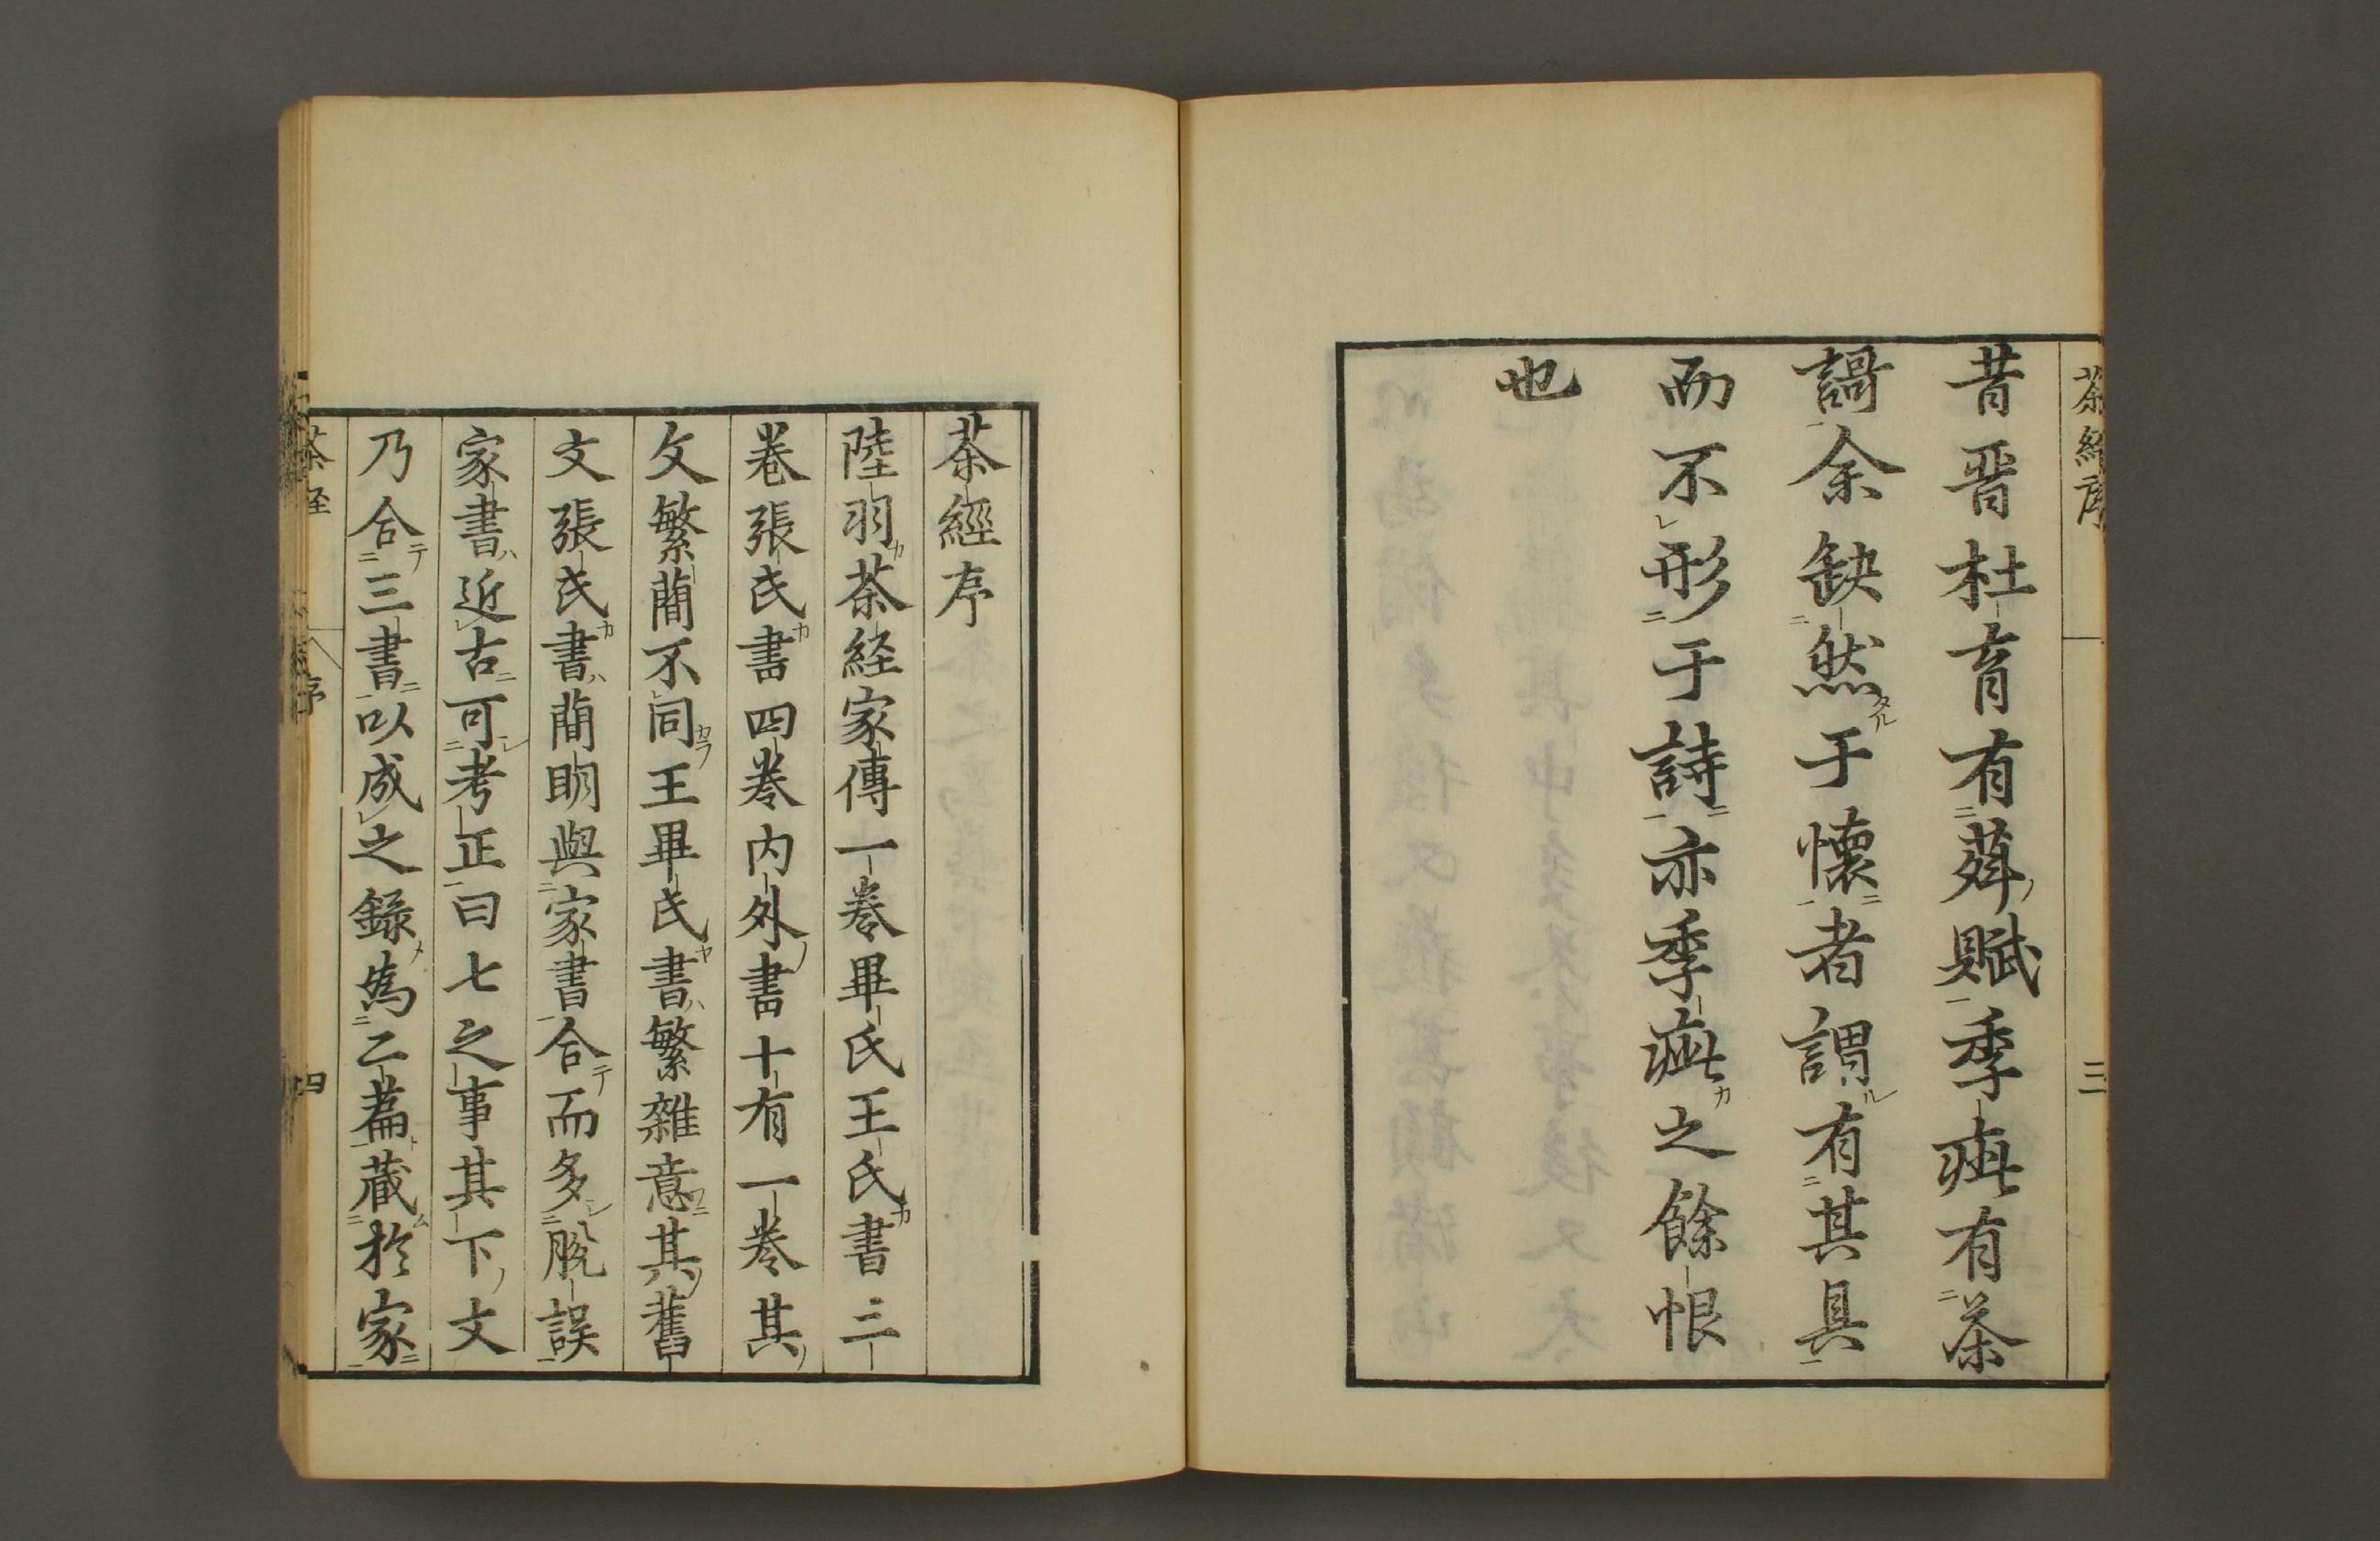 茶經序
三
昔晉杜育有荈賦季疵有茶
謌余缺然于懷者謂有其具
而不形于詩亦季疵之餘恨
也
茶經序
陸羽茶経家傳一巻畢氏王氏書三
巻張氏書四巻内外書十有一巻其
文繁蕳不同王畢氏書繁雜意其舊
文張氏書蕳明與家書合而多脫誤
家書近古可考正曰七之事其下文
乃合三書以成之錄為二篇藏於家
茶经
序
四